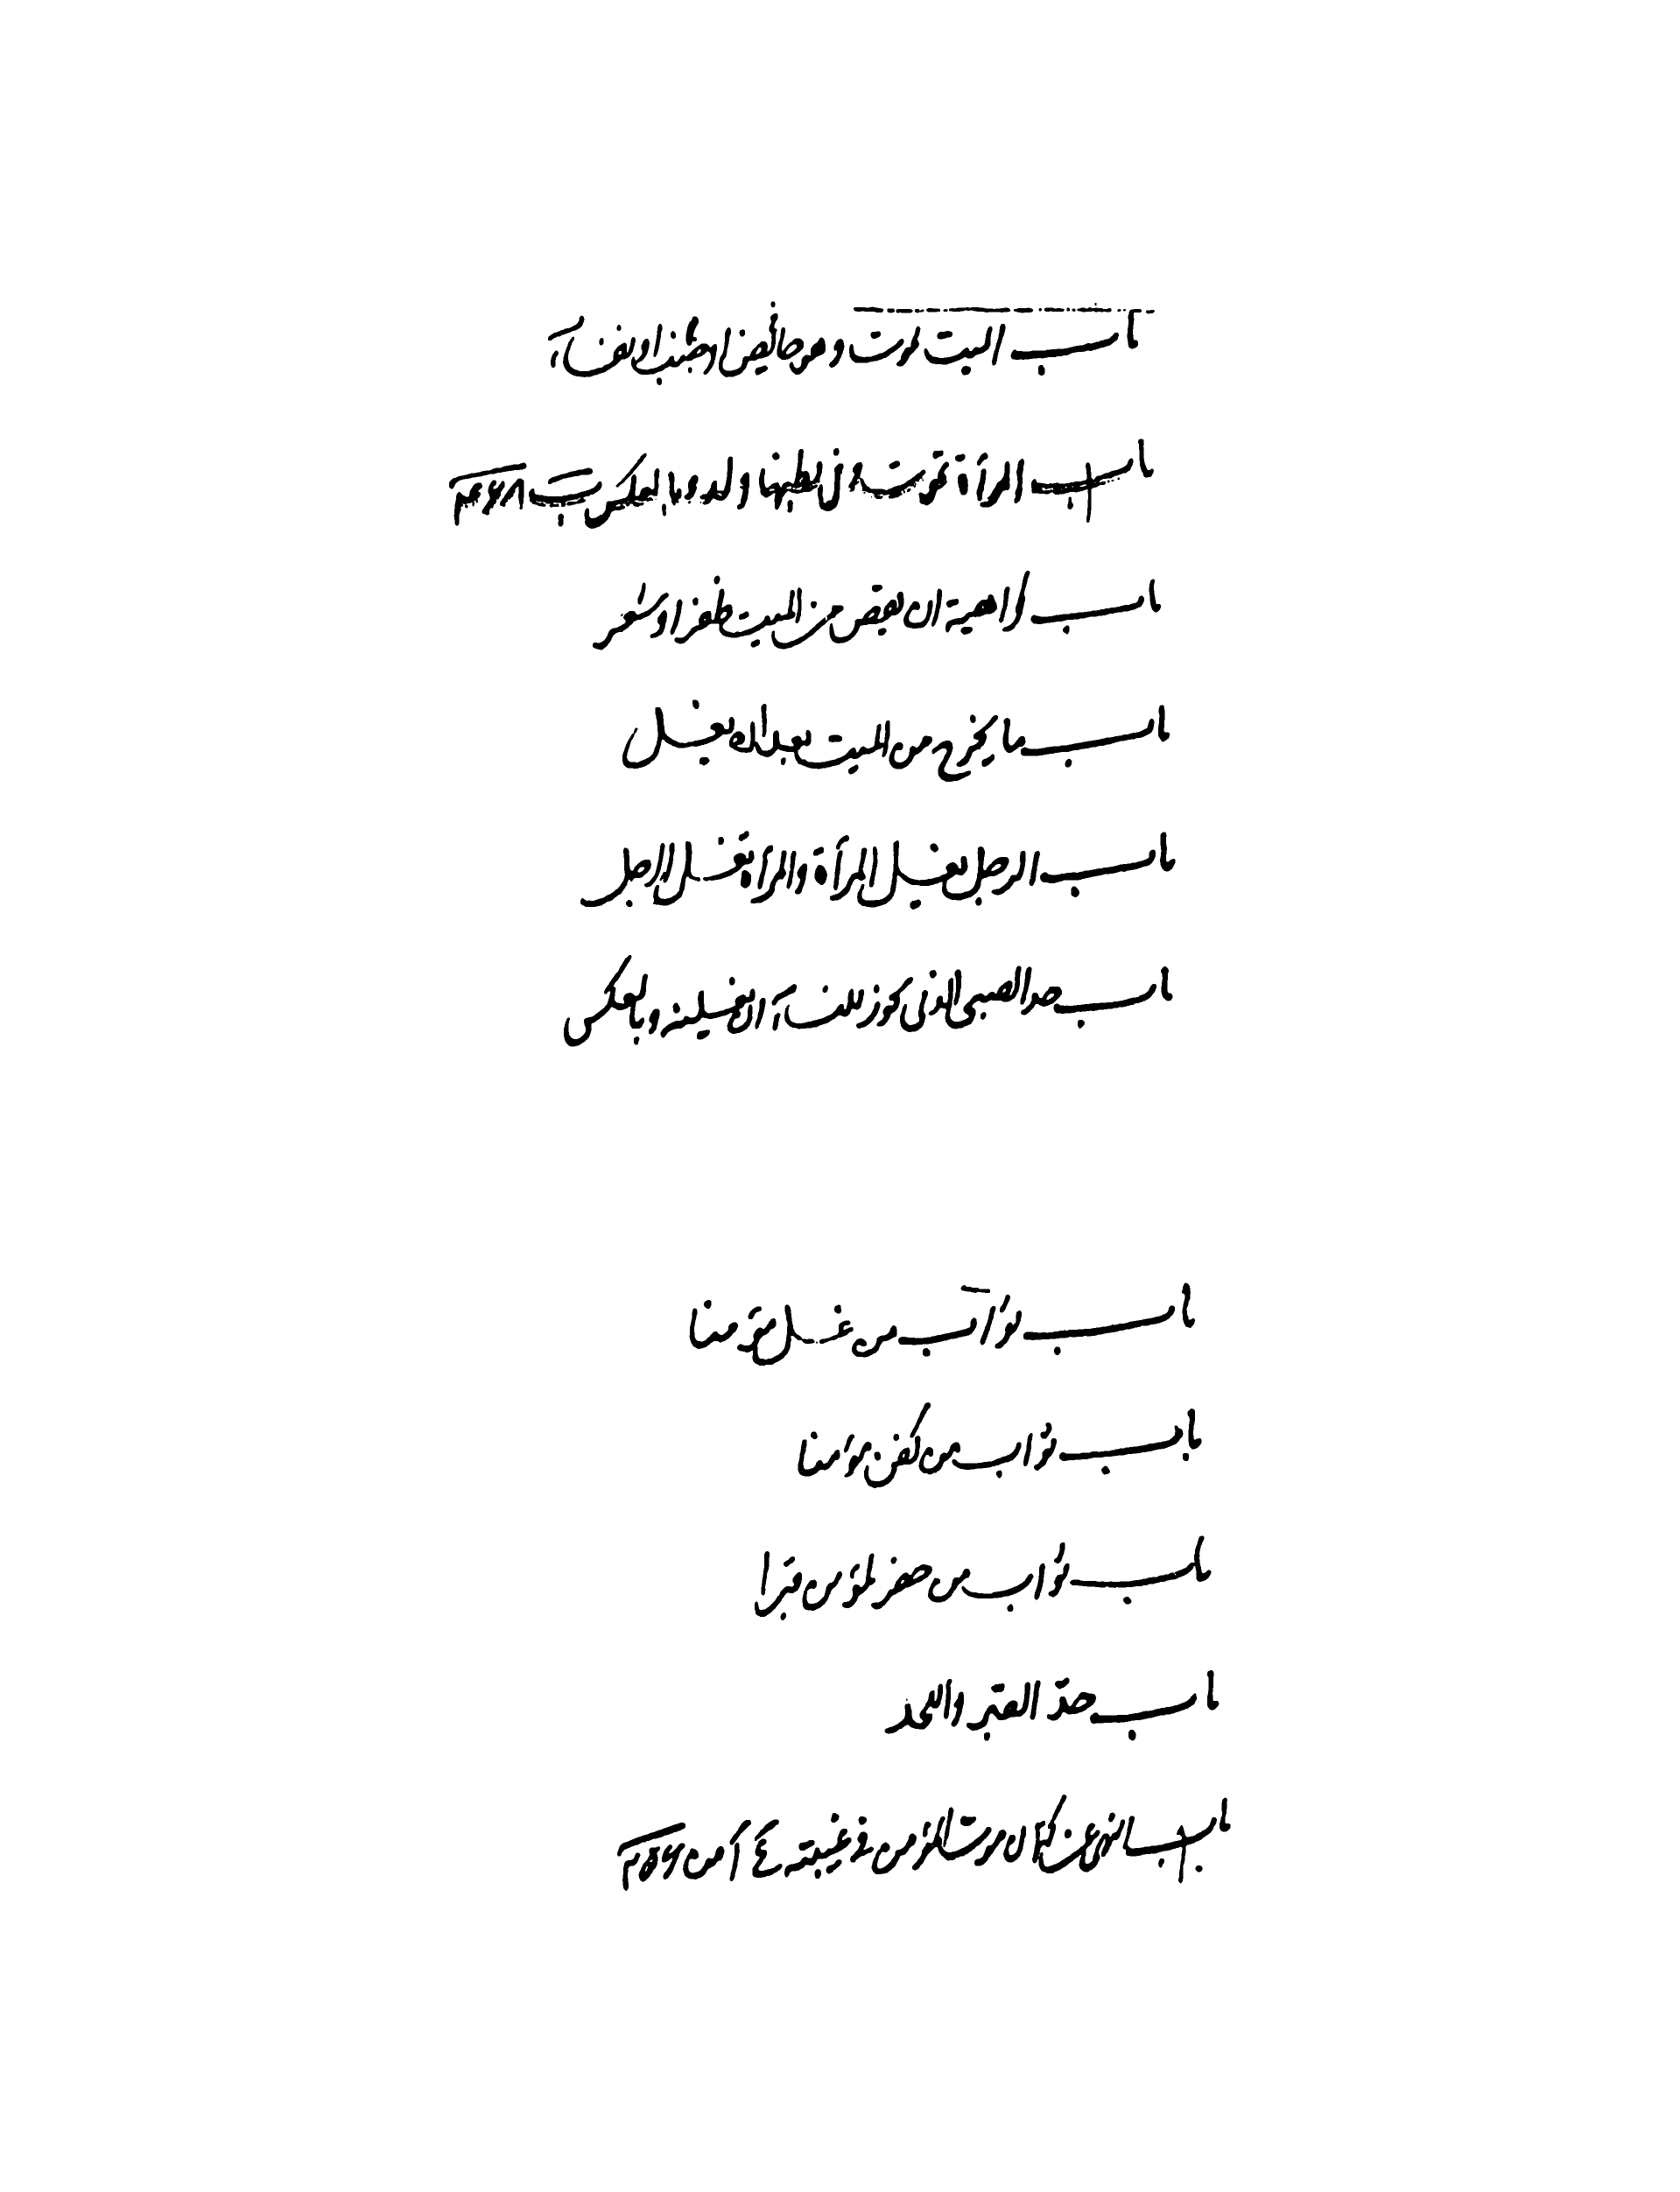 باب الميت يموت وهو جنب او حائض او نفساء
باب المرأة تموت وفي بطنها ولد وبالعكس
باب كراهية ان يقص من الميت ظفر او شعر
باب ما يخرج من الميت بعد ان يغسل
باب الرجل يغسل المرأة والمرأة تغسل الرجل
باب حد الصبي الذي يجوز للنساء ان يغسلنه وبالعكس
باب ثواب من غسل مؤمنا
باب ثواب من كفن مؤمنا
باب ثواب من حفر لمؤمن قبرا
باب حدّ القبر واللحد
باب النهي عن كتمان موت المؤمن في غيبته